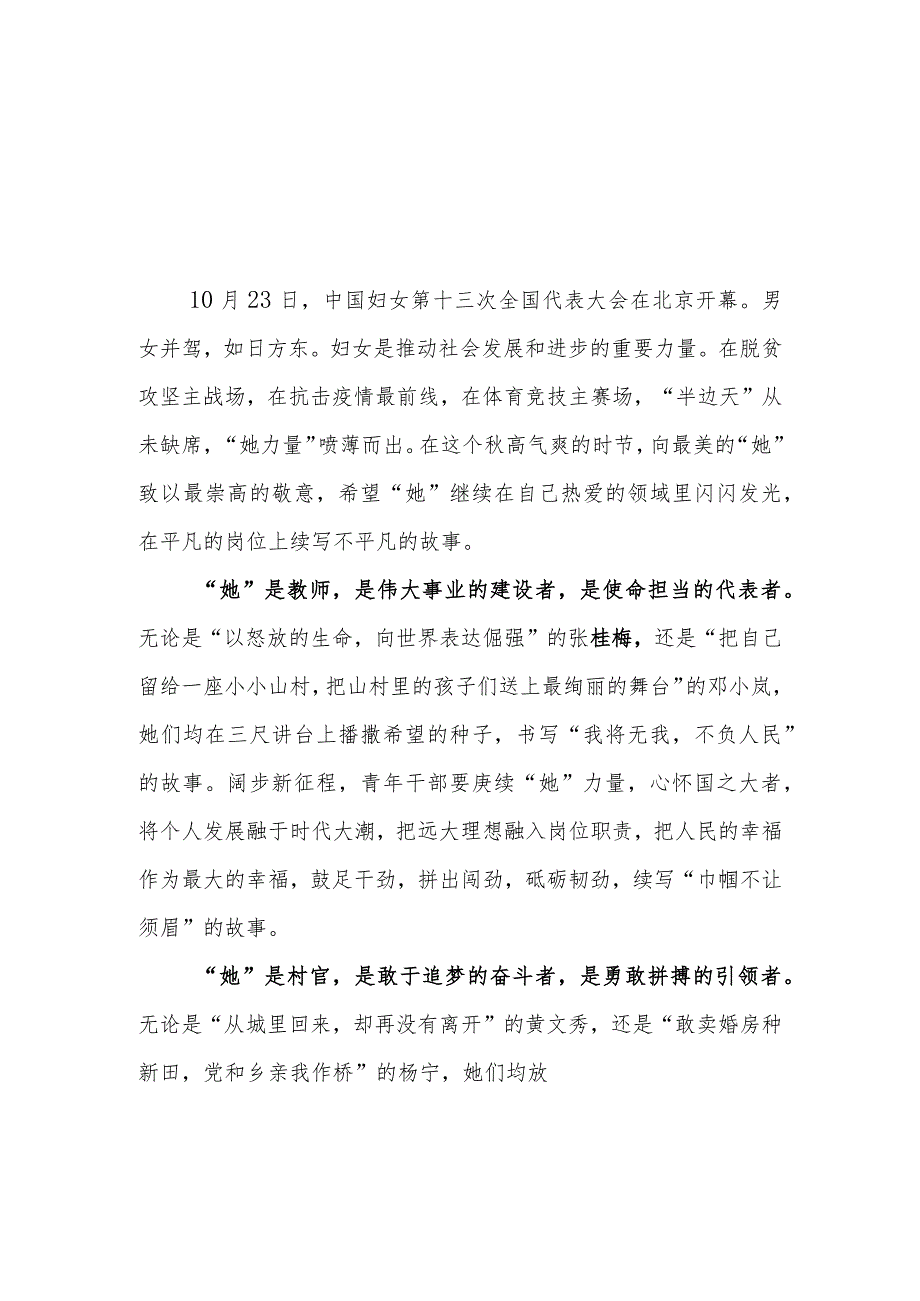 10 月 23 日，中国妇女第十三次全国代表大会在北京开幕。男
女并驾，如日方东。妇女是推动社会发展和进步的重要力量。在脱贫
攻坚主战场，在抗击疫情最前线，在体育竞技主赛场，“半边天”从
未缺席，“她力量”喷薄而出。在这个秋高气爽的时节，向最美的“她”
致以最崇高的敬意，希望“她”继续在自己热爱的领域里闪闪发光，
在平凡的岗位上续写不平凡的故事。
“她”是教师，是伟大事业的建设者，是使命担当的代表者。
无论是“以怒放的生命，向世界表达倔强”的张桂梅，还是“把自己
留给一座小小山村，把山村里的孩子们送上最绚丽的舞台”的邓小岚，
她们均在三尺讲台上播撒希望的种子，书写“我将无我，不负人民”
的故事。阔步新征程，青年干部要庚续“她”力量，心怀国之大者，
将个人发展融于时代大潮，把远大理想融入岗位职责，把人民的幸福
作为最大的幸福，鼓足干劲，拼出闯劲，砥砺韧劲，续写“巾帼不让
须眉”的故事。
“她”是村官，是敢于追梦的奋斗者，是勇敢拼搏的引领者。
无论是“从城里回来，却再没有离开”的黄文秀，还是“敢卖婚房种
新田，党和乡亲我作桥”的杨宁，她们均放